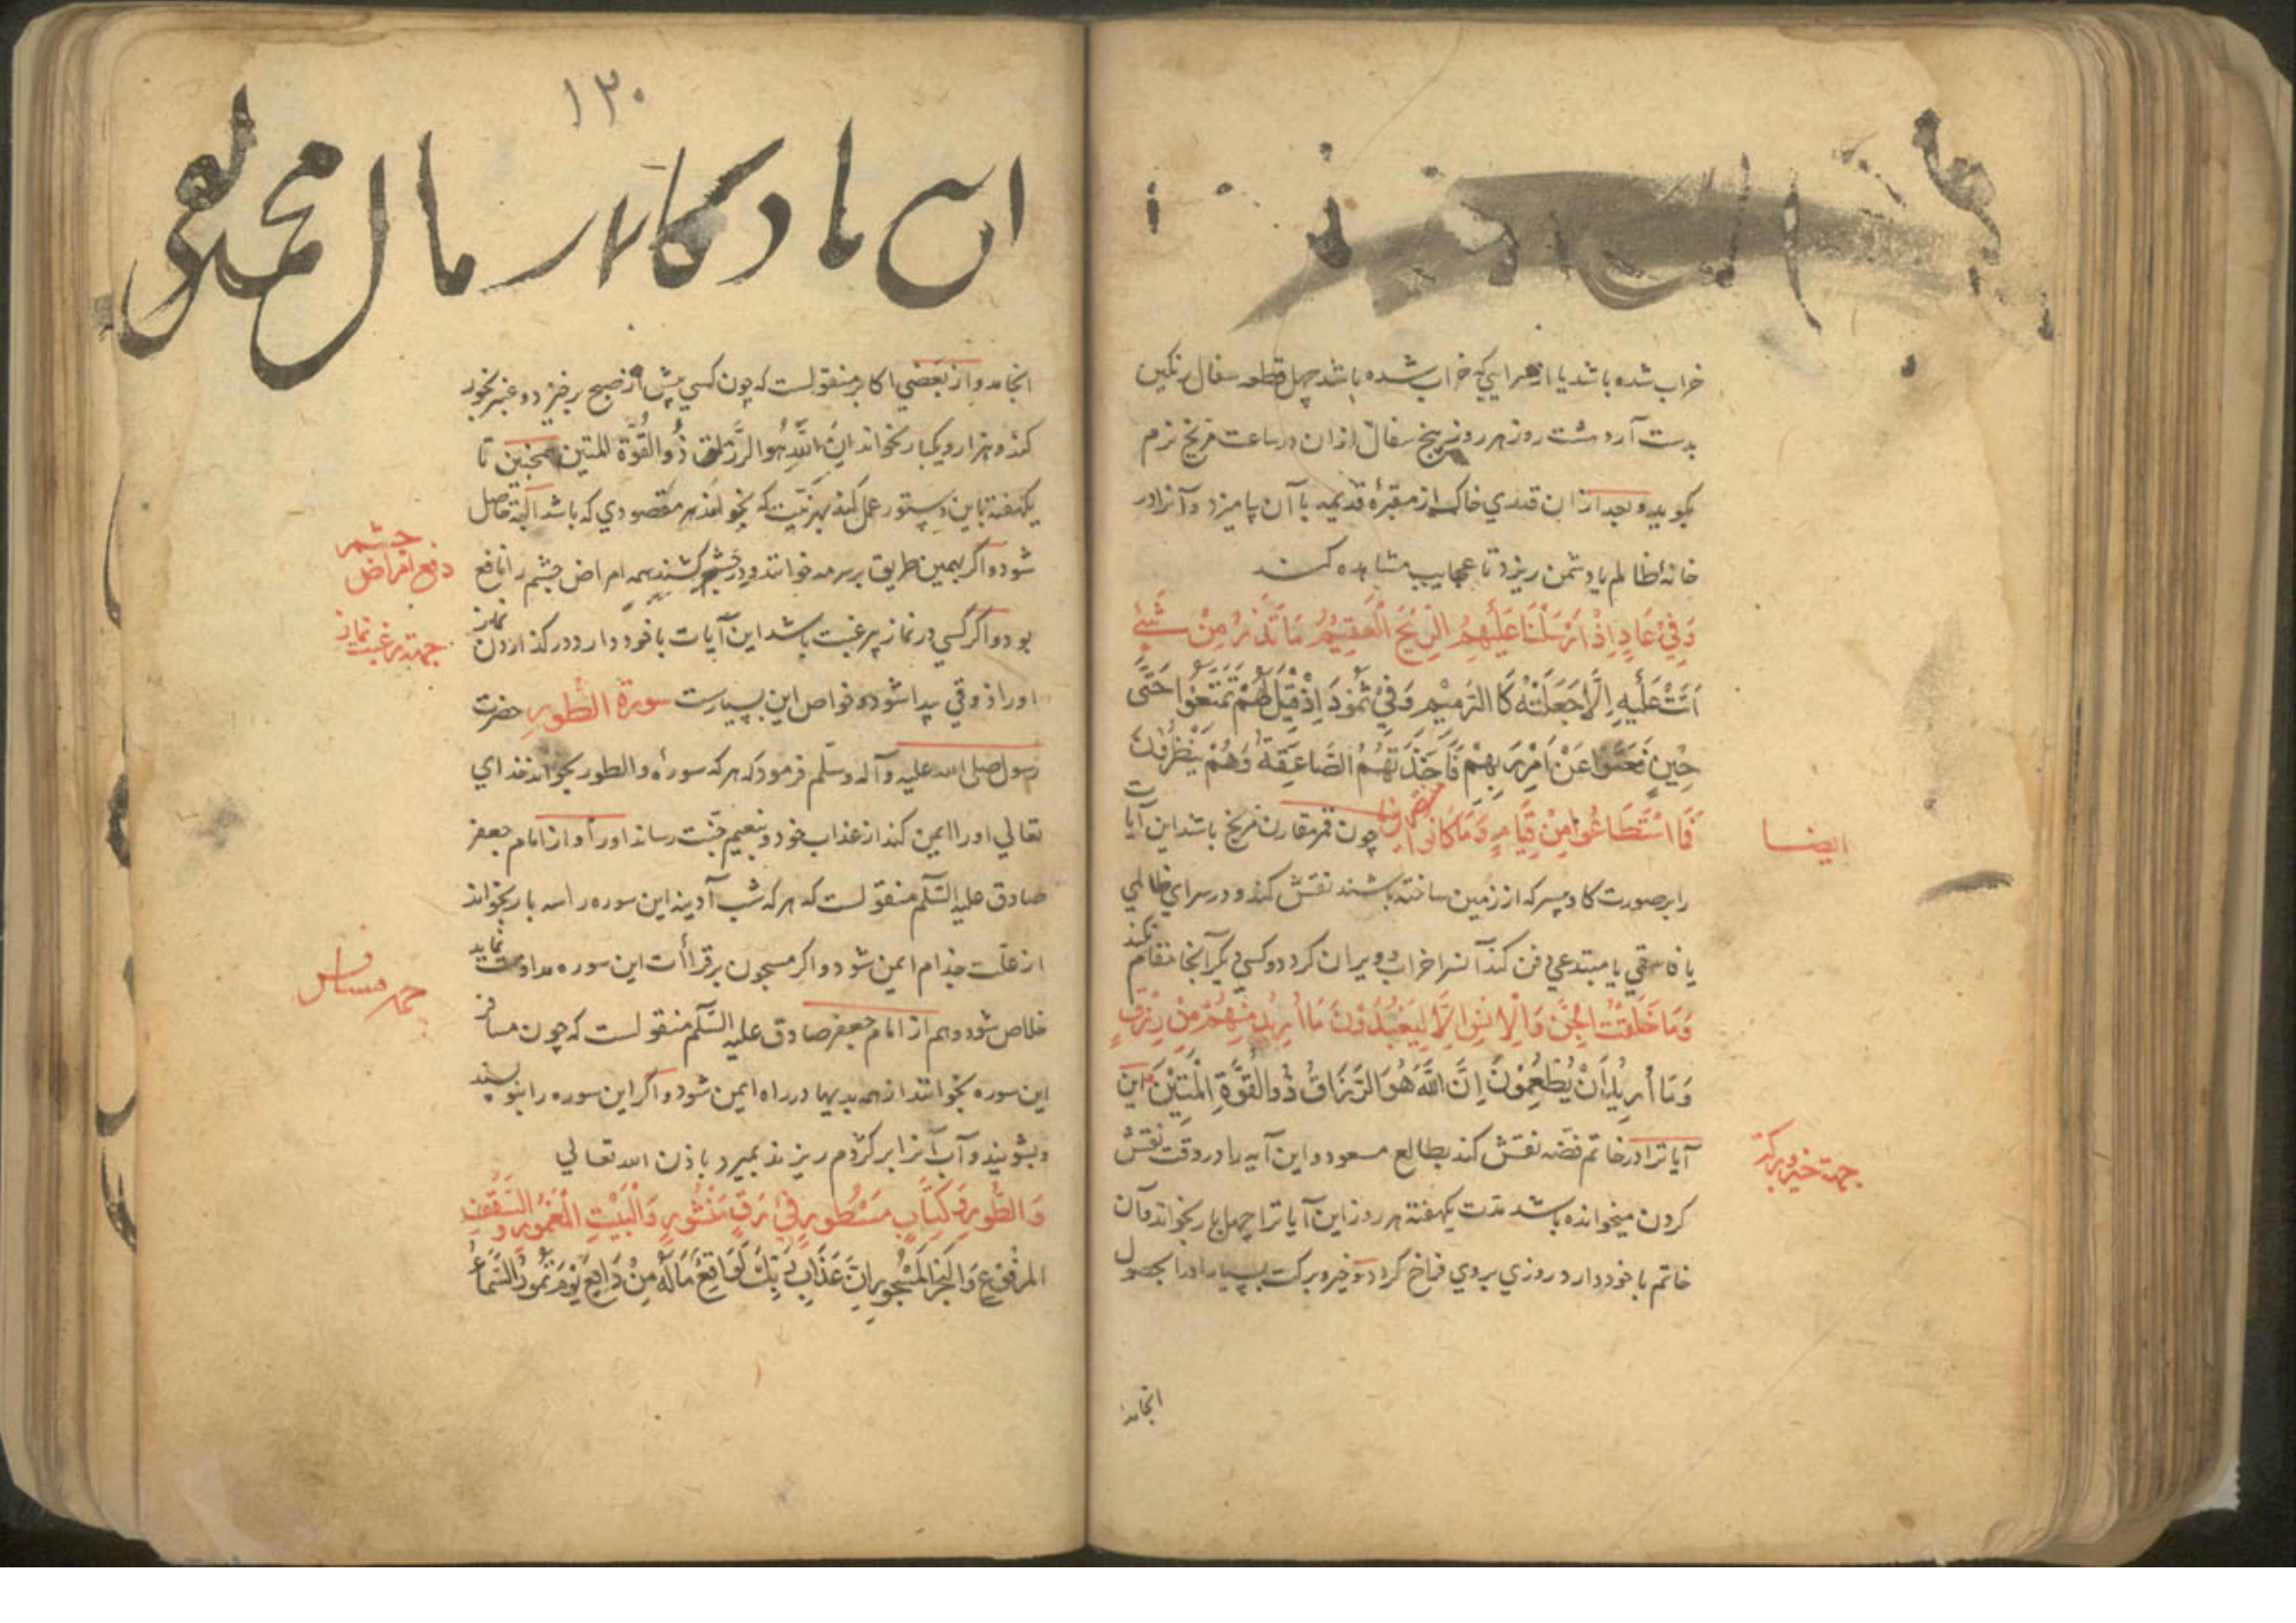 خراب شده باشد یا از صحرایی که خراب شده باشد چهل قطعه سفال رنکین
بدست آرد هشت روز هر روز پنج سفال ازان در ساعت مریخ نرم
بکوبد و بعد ازان قدری خاک از مقبرهٔ قدیمه با آن بیامیزد و آنرا در
خانهٔ ظالم یا دشمن ریزد تا عجایب مشاهده کند
وَفِي عَادٍ اِذْ اَرْسَلْنَا عَلَيْهِمُ الرِّيْحَ الْعَقِيْمَ مَا تَذَرُ مِنْ شَيْءٍ
اَتَتْ عَلَيْهِ اِلَّا جَعَلَتْهُ كَالرَّمِيْمِ وَفِيْ ثَمُوْدَ اِذْ قِيْلَ لَهُمْ تَمَتَّعُوْا حَتَّى
حِيْنٍ فَعَتَوْا عَنْ اَمْرِ رَبِّهِمْ فَاَخَذَتْهُمُ الصَّاعِقَةُ وَهُمْ يَنْظُرُوْنَ
فَمَا اسْتَطَاعُوْا مِنْ قِيَامٍ وَمَا كَانُوْا منتصرین چون قمر مقارن مریخ باشد این آیات
ایضا
را بر صورت کاو میسر که از زمین ساخته باشند نقش کند و در سرای ظالمی
یا فاسقی یا مبتدعی دفن کند آن سرا خراب و ویران کردد و کسی دیکر آنجا مقام نکند
وَمَا خَلَقْتُ الْجِنَّ وَالْاِنْسَ اِلَّا لِيَعْبُدُوْنَ مَا اُرِيْدُ مِنْهُمْ مِنْ رِزْقٍ
وَمَا اُرِيْدُ اَنْ يُطْعِمُوْنَ اِنَّ اللّٰهَ هُوَ الرَّزَّاقُ ذُو الْقُوَّةِ الْمَتِيْنُ این
آیاترا در خاتم فضه نقش کند بطالع مسعود و این آیه را در وقت نقش
جهة خیر و برکة
کردن میخوانده باشد مدت یکهفته هر روز این آیاترا چهل بار بخواند و آن
خاتم با خود دارد روزی بر وی فراخ کردد و خیر و برکت بسیار او را بحصول
انجامد
۱۳۰
محمد
انجامد و از بعضی اکابر منقولست که چون کسی پیش از صبح برخیزد و عنبر بخور
کند و هزار و یکبار بخواند اِنَّ اللّٰهَ هُوَ الرَّزَّاقُ ذُو الْقُوَّةِ الْمَتِيْن همچنین تا
یکهفته باین دستور عمل کند بهر نیت که بخواند هر مقصودی که باشد البته حاصل
شود و اکر بهمین طریق بر سرمه خوانند و در چشم کشند همه امراض چشم را نافع
دفع امراض چشم
بود و اکر کسی در نماز بی رغبت باشد این آیات با خود دارد در کذاردن نماز
جهة رغبت نماز
اورا ذوقی پیدا شود و خواص این بسیارست سورة الطور حضرت
رسول صلی الله علیه وآله وسلم فرمود که هر که سورهٔ والطور بخواند خدای
تعالی اورا ایمن کند از عذاب خود و بنعیم جنت رساند اورا و از امام جعفر
صادق علیه السلم منقولست که هر که شب آدینه این سوره را سه بار بخواند
از علت جذام ایمن شود و اکر مسجون بر قرأت این سوره مداومت نماید
خلاص شود و هم از امام جعفر صادق علیه السلم منقولست که چون مسافر
این سوره بخواند از همه بدیها در راه ایمن شود و اکر این سوره را بنویسند
و بشویند و آب آنرا بر کژدم ریزند بمیرد باذن الله تعالی
وَالطُّوْرِ وَكِتَابٍ مَسْطُوْرٍ فِيْ رَقٍّ مَنْشُوْرٍ وَالْبَيْتِ الْمَعْمُوْرِ وَالسَّقْفِ
الْمَرْفُوْعِ وَالْبَحْرِ الْمَسْجُوْرِ اِنَّ عَذَابَ رَبِّكَ لَوَاقِعٌ مَا لَهُ مِنْ دَافِعٍ يَوْمَ تَمُوْرُ السَّمَاءُ